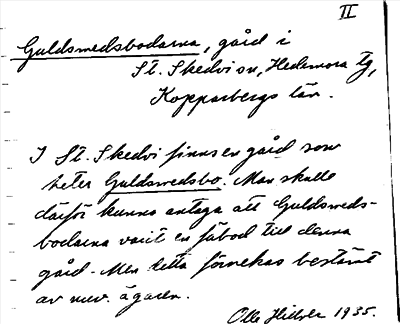 II
Guldsmedsbodarna, gård i
St. Skedvi sn, Hedemora tg,
Kopparbergs län.
I St. Skedvi finns en gård som
heter Guldsmedsbo. Man skulle
därför kunna antaga att Guldsmeds-
bodarna varit en fäbod till denna
gård. Men detta förnekas bestämt
av nuv. ägaren.
Olle Hillver 1935.